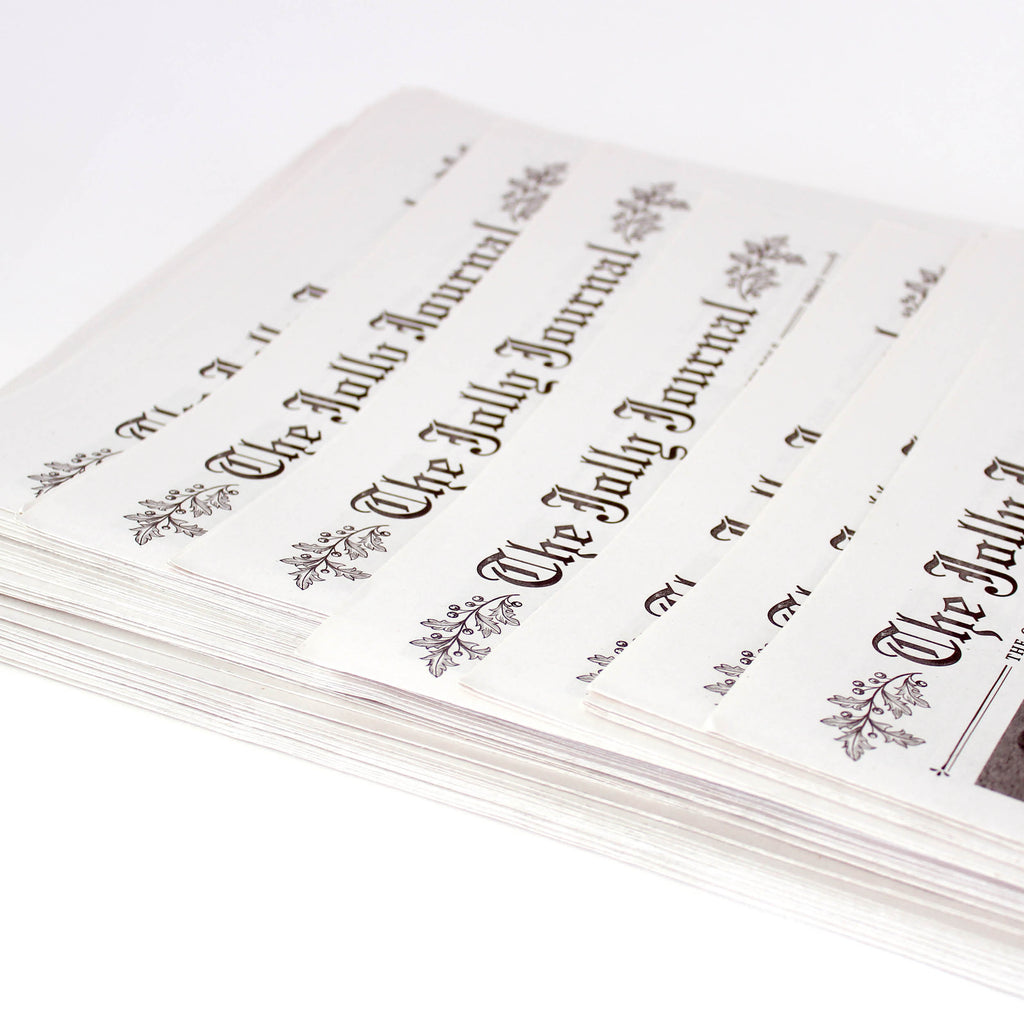 The Jolly Journal
The Jolly Journal
The Jolly Journal
The Jolly
THE